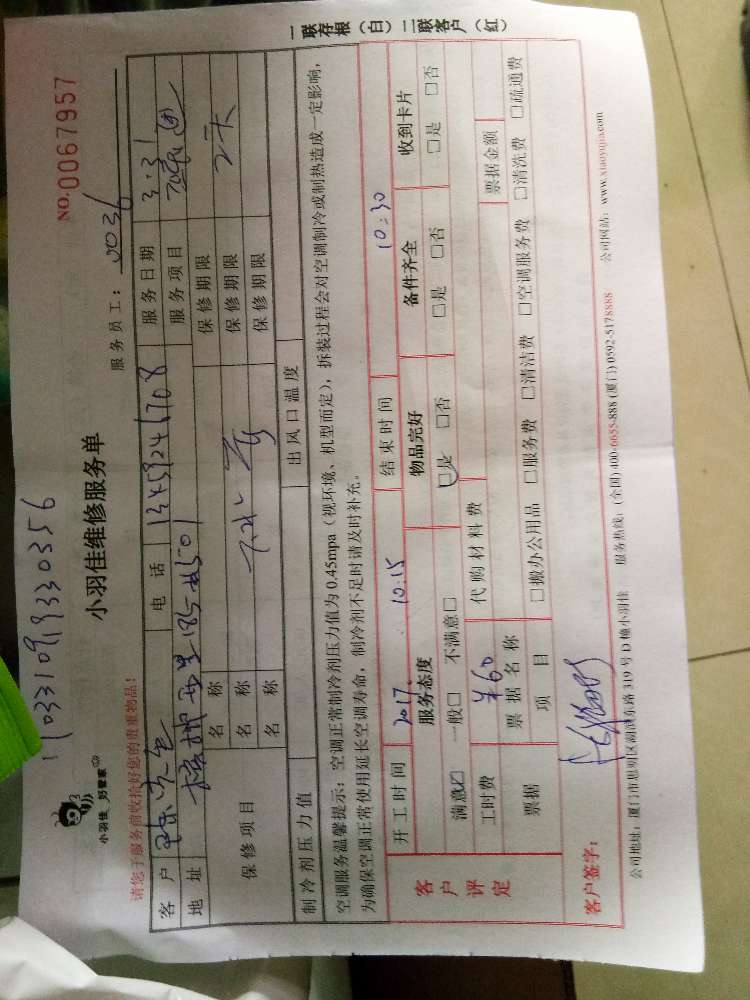 1103310919330356
小羽佳 好管家
小羽佳维修服务单
NO.00067957
请您于服务前收拾好您的贵重物品!
服务员工:
客户 电话 13459241708 服务日期 3.31
地址 501 服务项目
保修项目 名称 保修期限
名称 保修期限 2天
名称 保修期限
制冷剂压力值 出风口温度
空调服务温馨提示:空调正常制冷剂压力值为0.45mpa(视环境、机型而定),拆装过程会对空调制冷或制热造成一定影响,
为确保空调正常使用延长空调寿命,制冷剂不足时请及时补充。
开工时间 2017. 10:15 结束时间 10:30
客户评定 服务态度 物品完好 备件齐全 收到卡片
满意☑ 一般□ 不满意□ ☑是 □否 □是 □否 □是 □否
工时费 ¥60 代购材料费 票据金额
票据 票据名称
项目 □搬办公用品 □服务费 □清洁费 □空调服务费 □清洗费 □疏通费
客户签字:
公司地址:厦门市思明区湖滨东路319号D幢小羽佳 服务热线:(全国)400-6655-888 (厦门)0592-5178888 公司网站:www.xiaoyujia.com
一联存根(白)二联客户(红)